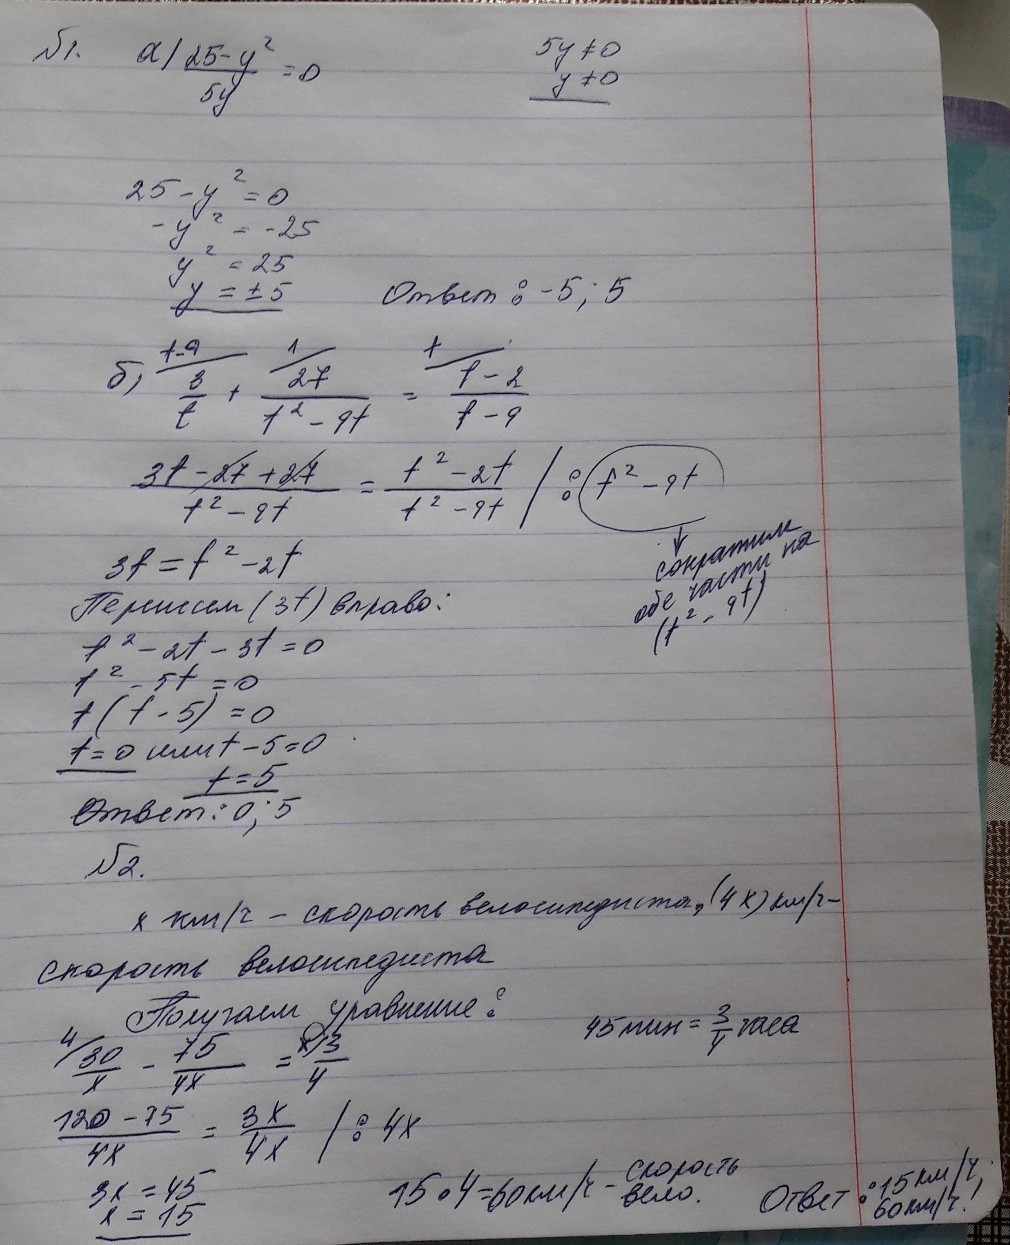 №1. а) (25-y²)/(5y) = 0
5y ≠ 0
y ≠ 0
25 - y² = 0
- y² = -25
y² = 25
y = ±5 Ответ: -5; 5
б) t-9/ 3/t + 1/ 27/(t² - 9t) = t/ (t-2)/(t-9)
(3t - 27 + 27)/(t² - 9t) = (t² - 2t)/(t² - 9t) / : t² - 9t
сократим
обе части на
(t² - 9t)
3t = t² - 2t
(3t) вправо:
t² - 2t - 3t = 0
t² - 5t = 0
t(t - 5) = 0
t = 0 или t - 5 = 0
t = 5
Ответ: 0; 5
№2.
x км/ч - скорость велосипедиста, (4x) км/ч -
скорость велосипедиста
Получаем уравнение:
45 мин = 3/4 часа
4/ 30/x - 75/4x = x/ 3/4
(120 - 75)/4x = 3x/4x / : 4x
3x = 45
x = 15
15·4=60км/ч - скорость
вело.
Ответ: 15км/ч;
60км/ч!